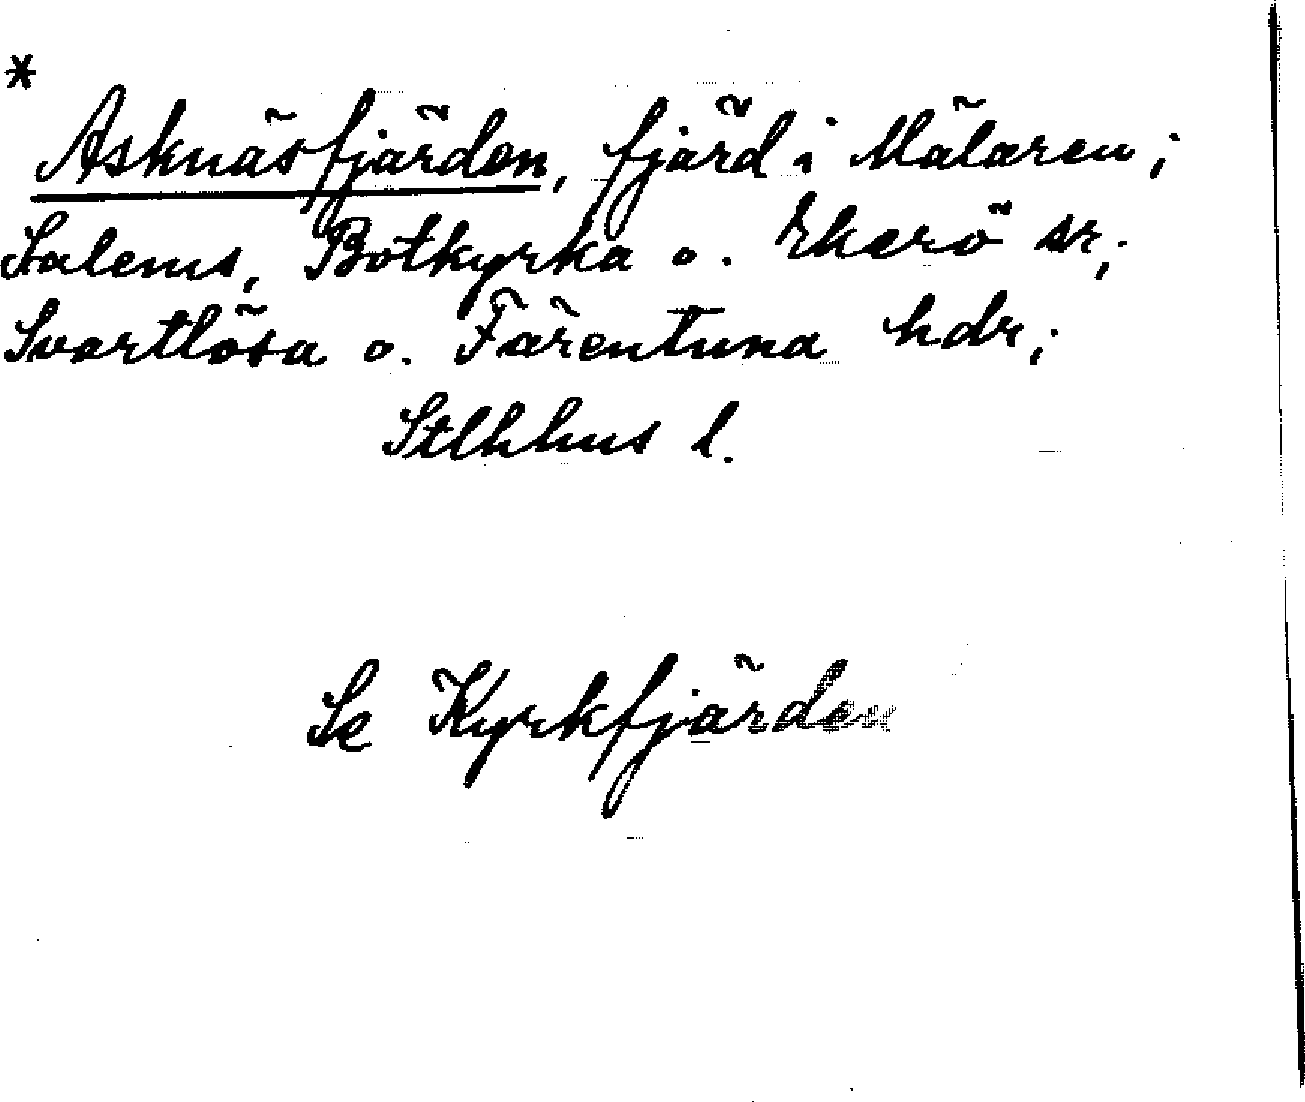 *
Asknäsfjärden, fjärd i Mälaren;
Salems, Botkyrka o. Ekerö sr;
Svartlösa o. Färentuna hdr;
Stlkhms l.
Se Kyrkfjärden